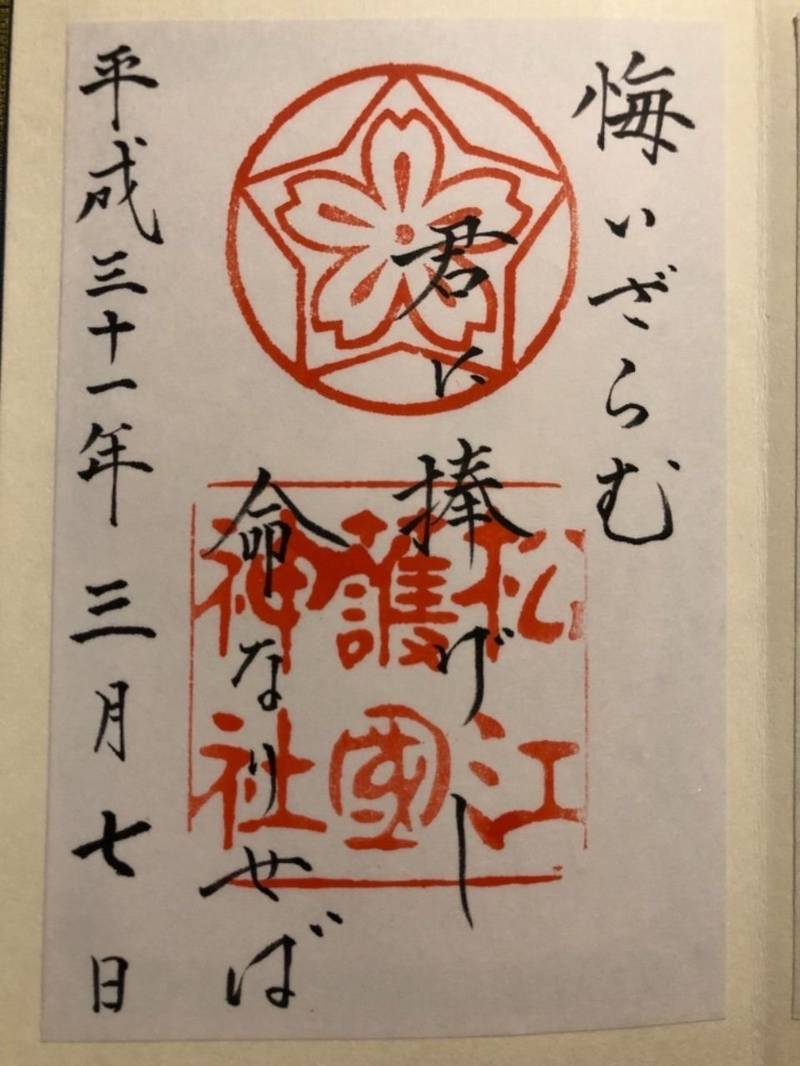 悔いざらむ
君に捧げし
命なりせば
平成三十一年三月七日
松江
護國
神社